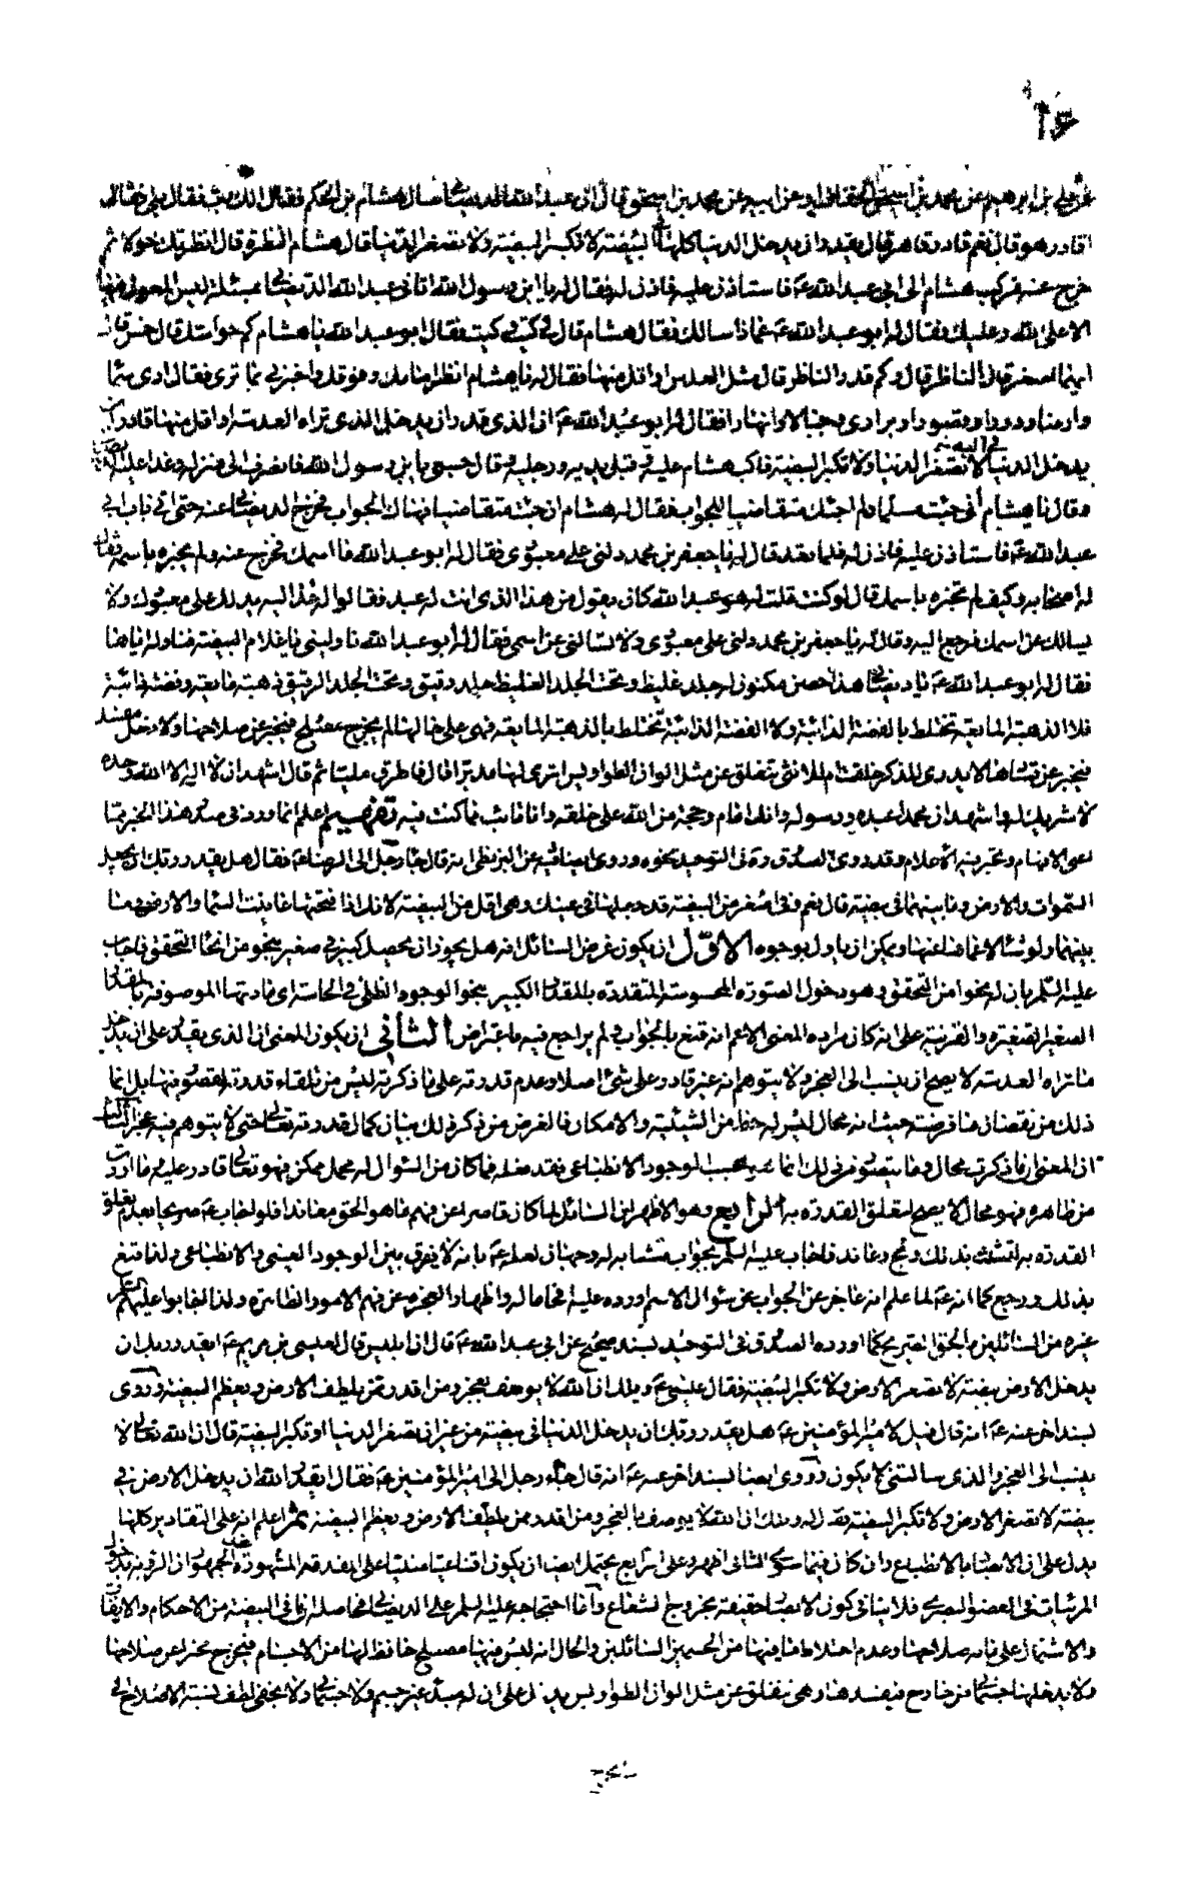 ١٦
علي بن ابرهيم عن محمد بن اسحق الخفاف او عن ابيه عن محمد بن اسحق قال ان عبد الله الديصاني سال هشام بن الحكم فقال الك رب فقال بلى فقال
اقادر هو قال نعم قادر قاهر قال يقدر ان يدخل الدنيا كلها في البيضة لا تكبر البيضة ولا تصغر الدنيا قال هشام النظرة قال انظرتك حولا ثم
خرج عنه فركب هشام الى ابي عبد الله ع فاستاذن عليه فاذن له فقال له يا ابن رسول الله اتاني عبد الله الديصاني بمسئلة ليس المعول فيها
الا على الله وعليك فقال له ابو عبد الله ع عماذا سالك فقال هشام قال لي كيت كيت فقال ابو عبد الله يا هشام كم حواسك قال خمس قال
ايها اصغر قال الناظر قال وكم قدر الناظر قال مثل العدسة او اقل منها فقال له يا هشام انظر امامك وفوقك واخبرني بما ترى فقال ارى سماء
وارضا ودورا وقصورا وبراري وجبالا وانهارا فقال له ابو عبد الله ع ان الذي قدر ان يدخل الذي تراه العدسة او اقل منها قادر ان
يدخل الدنيا في البيضة لا تصغر الدنيا ولا تكبر البيضة فاكب هشام عليه وقبل يديه ورجليه وقال حسبي يا بن رسول الله فانصرف الى منزله وغدا عليه
فقال يا هشام اني جئتك مسلما ولم اجئك متقاضيا للجواب فقال له هشام ان جئت متقاضيا فهاك الجواب فخرج الديصاني عنه حتى اتى باب ابي
عبد الله ع فاستاذن عليه فاذن له فلما قعد قال له يا جعفر بن محمد دلني على معبودي فقال له ابو عبد الله ما اسمك فخرج عنه ولم يخبره باسمه فقال
له اصحابه كيف لم تخبره باسمك قال لو كنت قلت له عبد الله كان يقول من هذا الذي انت له عبد فقالوا له عد اليه يدلك على معبودك ولا
يسالك عن اسمك فرجع اليه وقال له يا جعفر بن محمد دلني على معبودي ولا تسالني عن اسمي فقال له ابو عبد الله ناولني يا غلام البيضة فناوله اياها
فقال له ابو عبد الله ع يا ديصاني هذا حصن مكنون له جلد غليظ وتحت الجلد الغليظ جلد رقيق وتحت الجلد الرقيق ذهبة مايعة وفضة ذائبة
فلا الذهبة المايعة تختلط بالفضة الذائبة ولا الفضة الذائبة تختلط بالذهبة المايعة فهي على حالها لم يخرج مصلح فيخبر عن صلاحها ولا دخل مفسد
فيخبر عن فسادها لا يدرى للذكر خلقت ام للانثى يتفلق عن مثل الوان الطواويس اترى لها مدبرا قال فاطرق مليا ثم قال اشهد ان لا اله الا الله وحده
لا شريك له واشهد ان محمدا عبده ورسوله وانك امام وحجة من الله على خلقه وانا تائب مما كنت فيه تفهيم اعلم انما ورد في صدر هذا الخبر مما
اعيى الافهام وتحير فيه الاعلام وقد روى الصدوق ره في التوحيد نحوه وروى ايضا فيه عن البزنطي انه قال جاء رجل الى الرضا ع فقال هل يقدر ربك ان يجعل
السموات والارض وما بينهما في بيضة قال نعم وفي اصغر من البيضة قد جعلها في عينك وهي اقل من البيضة لانك اذا فتحتها عاينت السماء والارض وما
بينهما ولو شاء لاعماك عنها ويمكن ان ياول بوجوه الاول ان يكون غرض السائل انه هل يجوز ان يحصل كبير في صغير بنحو من انحاء التحقق فاجاب
عليه السلم بان له نحوا من التحقق وهو دخول الصورة المحسوسة المتقدرة بالمقدار الكبير بنحو الوجود الظلي في الحاسة اي مادتها الموصوفة بالمقدار
الصغير الصغيرة والقرينة على انه كان مراده المعنى الاعم انه قنع بالجواب ولم يراجع فيه باعتراض الثاني ان يكون المعنى ان الذي يقدر على ان يدخل
ما تراه العدسة لا يصح ان ينسب الى العجز ولا يتوهم انه غير قادر على شئ اصلا وعدم قدرته على ما ذكرت ليس من تلقاء قدرته لقصور فيها بل انما
ذلك من نقصان ما فرضت حيث انه محال ليس له حظ من الشيئية والامكان فالغرض من ذكر ذلك بيان كمال قدرته تعالى حتى لا يتوهم فيه عجز الثالث
ان المعنى ان ما ذكرت محال وما يتصور من ذلك انما هو بحسب الوجود الانطباعي فقد فعله فما كان من السؤال له محمل ممكن فهو تعالى قادر عليه وما اردت
من ظاهره فهو محال لا يصح لتعلق القدرة به الرابع وهو الاظهر ان السائل لما كان قاصرا عن فهم ما هو الحق معاندا فلو اجاب ع صريحا بعدم تعلق
القدرة به لتشبث بذلك ولج وعاند فاجاب عليه السلم بجواب متشابه له وجهان لعلمه ع بانه لا يفرق بين الوجود العيني والانطباعي ولذا قنع
بذلك ورجع كما انه ع لما علم انه عاجز عن الجواب عن سؤال الاسم اورده عليه افحاما له واظهارا لعجزه عن فهم الامور الظاهرة ولذا اجابوا عليهم السلم
غيره من السائلين بالحق الصريح كما اورده الصدوق في التوحيد بسند صحيح عن ابي عبد الله ع قال ان ابليس قال لعيسى بن مريم ع ايقدر ربك ان
يدخل الارض بيضة لا تصغر الارض ولا تكبر البيضة فقال عيسى ع ويلك ان الله لا يوصف بعجز ومن اقدر ممن يلطف الارض ويعظم البيضة وروى
بسند اخر عنه ع انه قال قيل لامير المؤمنين ع هل يقدر ربك ان يدخل الدنيا في بيضة من غير ان تصغر الدنيا او تكبر البيضة قال ان الله تعالى لا
ينسب الى العجز والذي سالتني لا يكون وروى ايضا بسند اخر عنه ع انه قال جاء رجل الى امير المؤمنين ع فقال ايقدر الله ان يدخل الارض في
بيضة لا تصغر الارض ولا تكبر البيضة فقال له ويلك ان الله لا يوصف بالعجز ومن اقدر ممن يلطف الارض ويعظم البيضة ثم اعلم انه على التقادير كلها
يدل على ان الابصار بالانطباع وان كان فيما سوى الثاني اظهر وعلى الرابع يحتمل ايضا ان يكون اقناعيا مبنيا على المقدمة المشهورة عند الجمهور ان الرؤية بدخول
المرئيات في العضو البصري فلا ينافي كون الابصار حقيقة بخروج الشعاع واما احتجاجه عليه السلم على الديصاني فحاصله ان ما في البيضة من الاحكام والاتقان
والاشتمال على ما به صلاحها وعدم اختلاط ما فيها من الجسمين السائلين والحال انه ليس فيها مصلح حافظ لها من الاجسام فيخرج مخبرا عن صلاحها
ولا يدخلها جسماني من خارج فيفسدها وهي تنفلق عن مثل الوان الطواويس يدل على ان له مبدأ غير جسم ولا جسماني ولا يخفى لطف نسبة الاصلاح الى